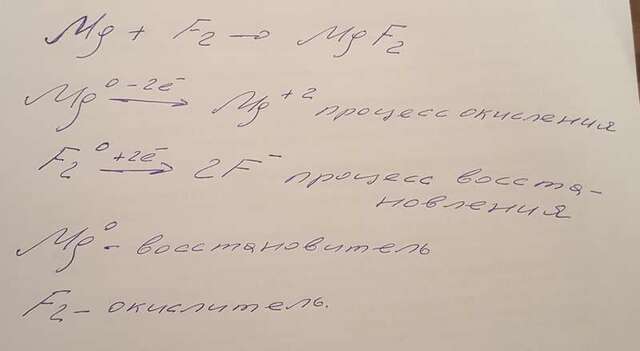 Mg + F₂ → MgF₂
Mg⁰ –2ē→ Mg⁺² процесс окисления
F₂⁰ +2ē→ 2F⁻ процесс восста-
новления
Mg⁰ - восстановитель
F₂ - окислитель.